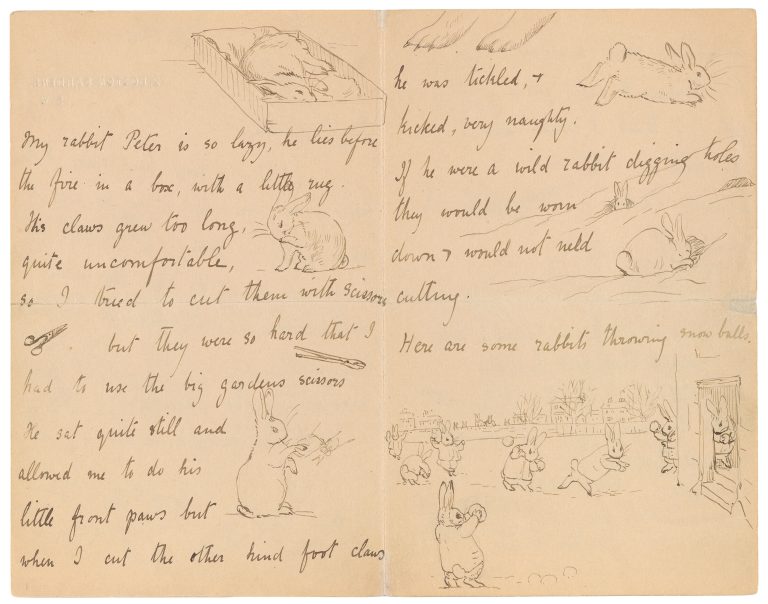 My rabbit Peter is so lazy, he lies before
the fire in a box, with a little rug.
His claws grew too long,
quite uncomfortable,
so I tried to cut them with scissors
but they were so hard that I
had to use the big gardens scissors
He sat quite still and
allowed me to do his
little front paws but
when I cut the other hind foot claws
he was tickled, +
kicked, very naughty.
If he were a wild rabbit digging holes
they would be worn
down + would not neld
cutting.
Here are some rabbits throwing snow balls.